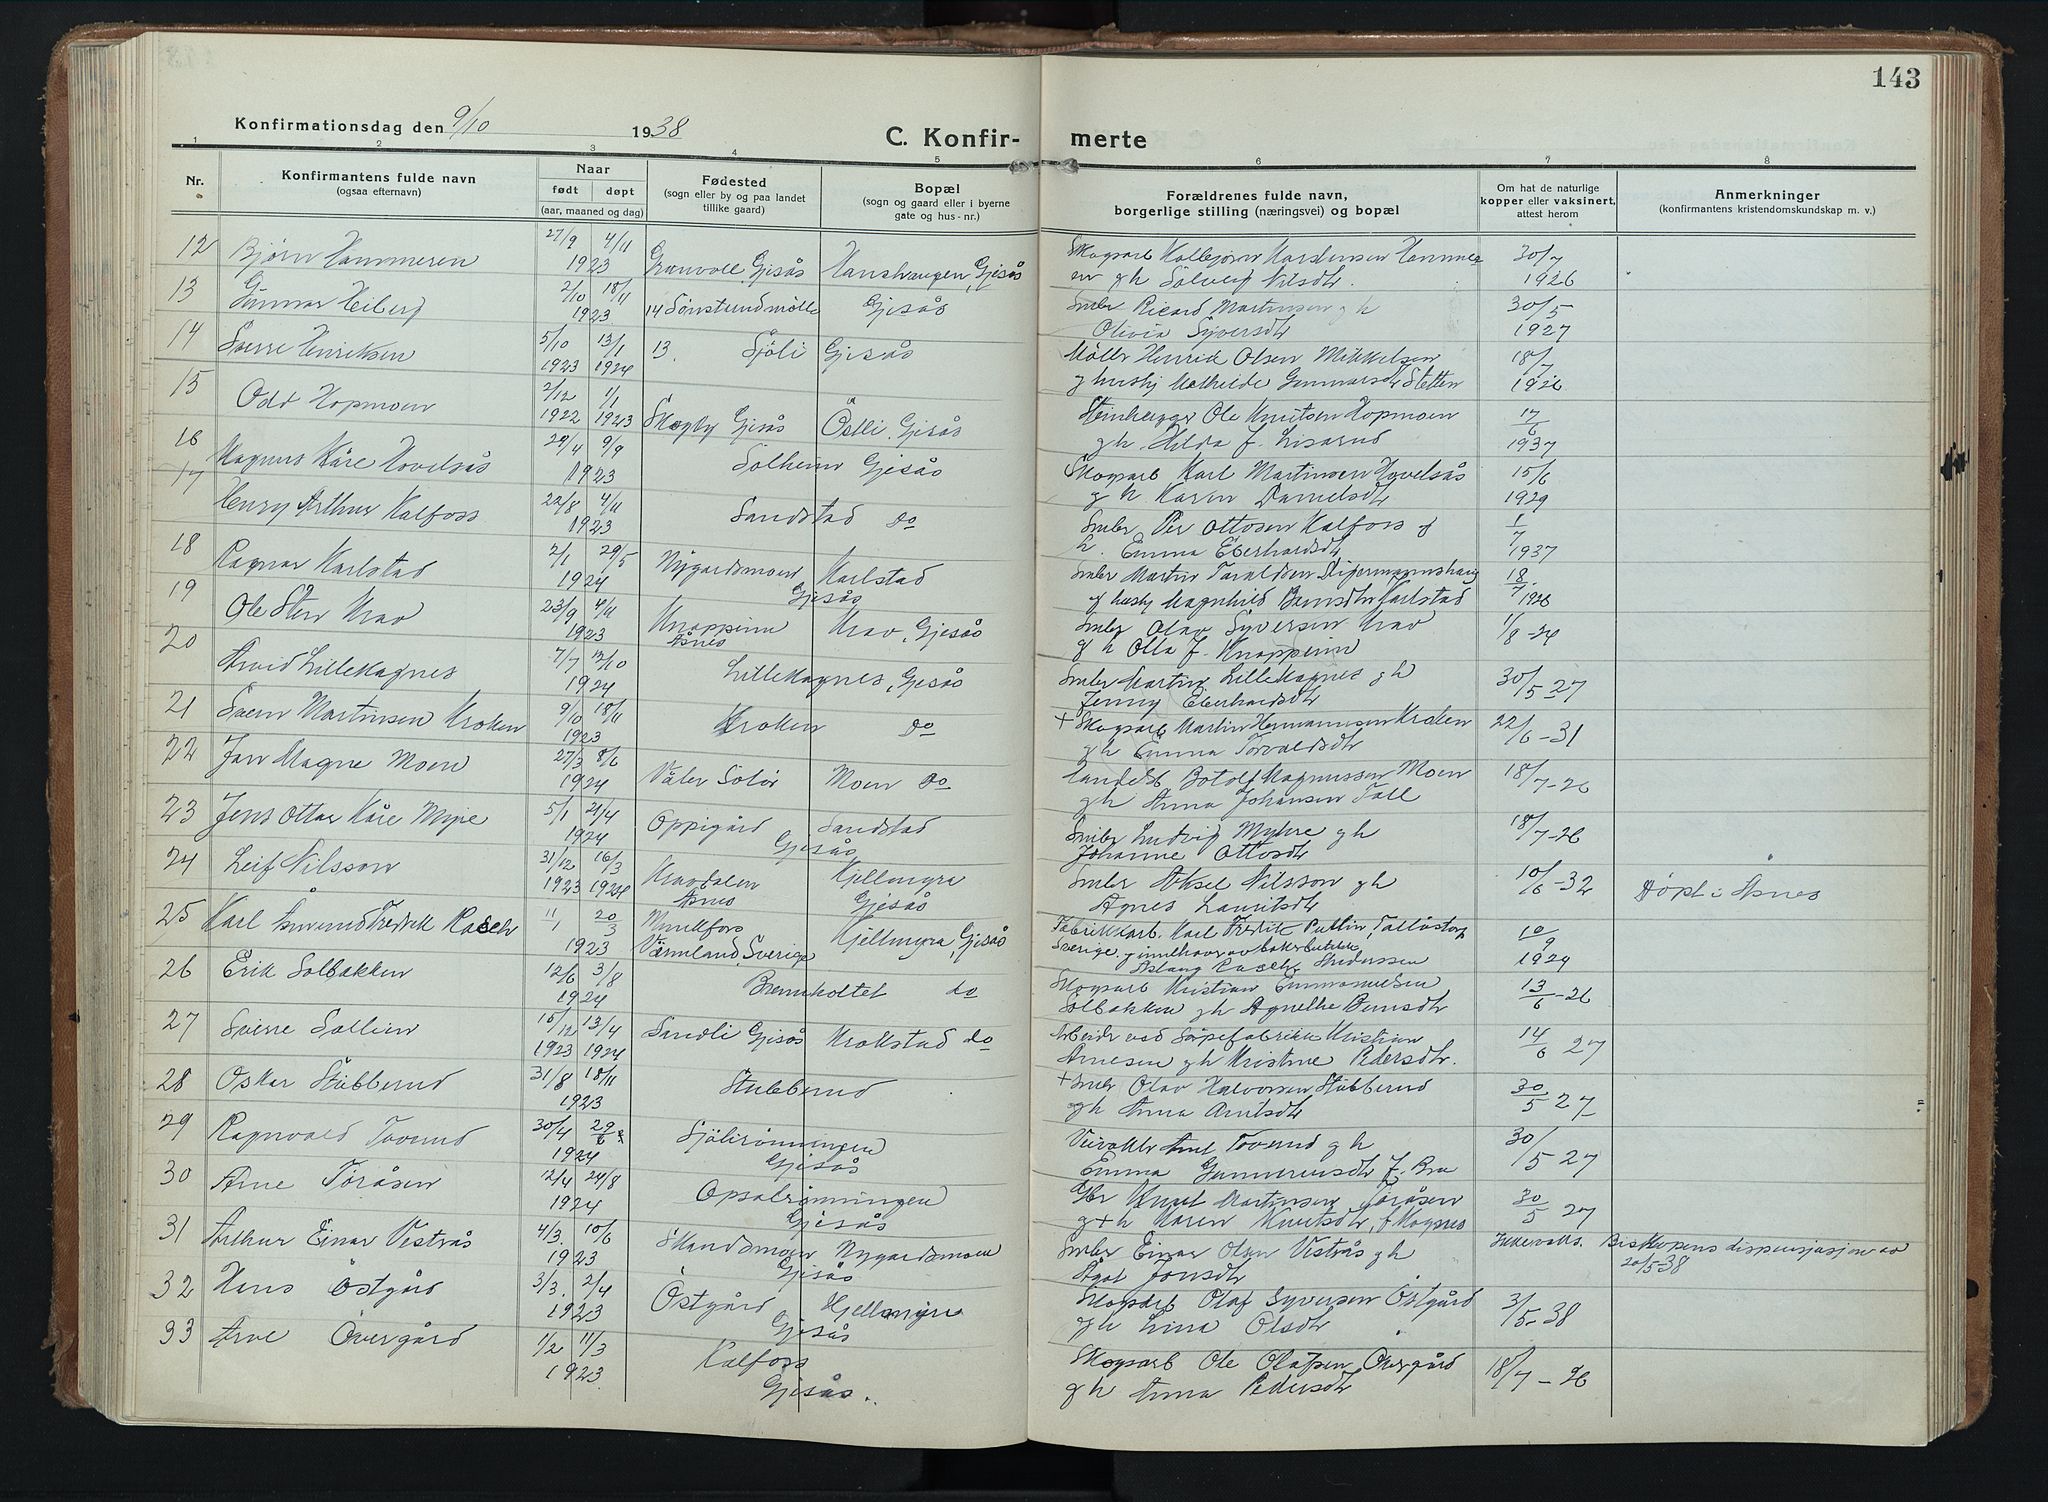 143
Konfirmationsdag den 9/10 1938
C. Konfir- merte
1 2 3 4 5 6 7 8
Nr.
Konfirmantens fulde navn
(ogsaa efternavn)
Naar
født døpt
(aar, maaned og dag)
Fødested
(sogn eller by og paa landet
tillike gaard)
Bopæl
(sogn og gaard eller i byerne
gate og hus-nr.)
Forældrenes fulde navn,
borgerlige stilling (næringsvei) og bopæl
Om hat de naturlige
kopper eller vaksinert,
attest herom
Anmerkninger
(konfirmantens kristendomskundskap m. v.)
12 Bjørn Hammeren 27/9 4/11 Hanshaugen, Gjesås 30/7
1923 Gjesås 1926
Sølveig Nilsdtr.
13 Gunnar Heiberg 2/10 18/11 14 Gjesås Smbr Ricard Martinsen g h 30/5
1923 Olivia Syversdtr 1927
14 Sverre Henriksen 5/10 13/1 13. Sjöli Gjesås Henrik Olsen Mikkelsen 18/7
1923 1924 g husbj Mathilde Gunnarsdtr Sletten 1926
15 Odd Hopmoen 2/12 1/1 Skogby Gjesås Östli, Gjesås Ole Knutsen Hopmoen 17/6
1922 1923 g h. Hilda f. Lisarud 1937
16 Magnus Kåre Hovelsås 29/4 9/9 Solheim Gjesås Skogsarb Karl Martinsen Hovelsås 15/6
1923 g h Karen Danielsdtr 1929
17 Henry Arthur Kalfoss 22/8 4/11 Sandstad do Smbr Per Ottosen Kalfoss g 1/7
1923 h. Emma Eberhardsdtr 1937
18 Ragnar Karlstad 2/1 29/5 Nygardsmoen Karlstad Smbr Martin Taraldsen 18/7
1924 Gjesås Magnhild Karlstad 1926
19 Ole Sten Krav 23/9 4/11 Knappinn Krav, Gjesås Smbr Olav Syversen Krav 11/8-26
1923 Åsnes g h Olla f. Knappinn
20 Arvid Lillekagnes 7/7 12/10 Lillekagnes, Gjesås Smbr Martin Lillekagnes g h 30/5 27
1924 Jenny Eberhardsdtr
21 Svein Martinsen Kroken 9/10 18/11 Kroken do + Skogsarb Martin Hermannsen Kroken 22/6-31
1923 g h Emma Torvaldsdtr
22 Jan Magne Moen 27/3 8/6 Våler Solør Moen do Botolf Magnussen Moen 18/7-26
1924 g h Anna Johansen Tall
23 Jens Ottar Kåre Myre 5/1 21/4 Oppigård Sandstad Smbr Ludvig Myhre g h 18/7-26
1924 Gjesås Johanne Ottosdtr
24 Leif Nilsson 31/12 16/3 Kravdalen Kjellmyra Smbr Aksel Nilsson g h 10/6-32 Döpt i Åsnes
1923 1924 Åsnes Gjesås Agnes Lauritsdtr
25 Karl Fredrik Rasch 11/1 20/3 Munkfors Kjellmyra, Gjesås Fabrikkarb. Karl Fredrik 10/9
1923 Värmland, Sverige Sverige 1924
Aslaug Rasch
26 Erik Solbakken 12/6 3/8 Bremholtet do Skogsarb Kristian Emmanuelsen 13/6-26
1924 Solbakken g h Agnethe
27 Sverre Sollien 15/12 13/4 Sandli Gjesås Krokstad do Arbeider ved Kristian 14/6 27
1923 1924 Arnesen g h Kristine Pedersdtr.
28 Oskar Stubberud 31/8 18/11 Stubberud + Smbr Olav Halvorsen Stubberud 30/5 27
1923 g h Anna
29 Ragnvald Tovsrud 30/4 29/6 Sjölirønningen Veivokter g h 30/5 27
1924 Gjesås Emma f. Bra
30 Arne Toråsen 12/4 24/8 Opsalrønningen Gbr Knut Martinsen Toråsen 30/5 27
1924 Gjesås g + h Karen Knutsdtr,
31 Arthur Einar Vestrås 4/3 10/6 Nygardsmoen Smbr Einar Olsen Vestrås g h Biskopens dispensasjon av
1923 Gjesås Jonsdtr 20/5-38
32 Hans Östgård 3/3. 2/4 Östgård Kjellmyra Skogsarb Olaf Syversen Östgård 3/5-38
1923 Gjesås g h Lina Olsdtr
33 Arve Övergård 1/2 11/3 Kalfoss Skogsarb Ole Olafsen Övergård 18/7-26
1923 Gjesås. g h Anna Pedersdtr